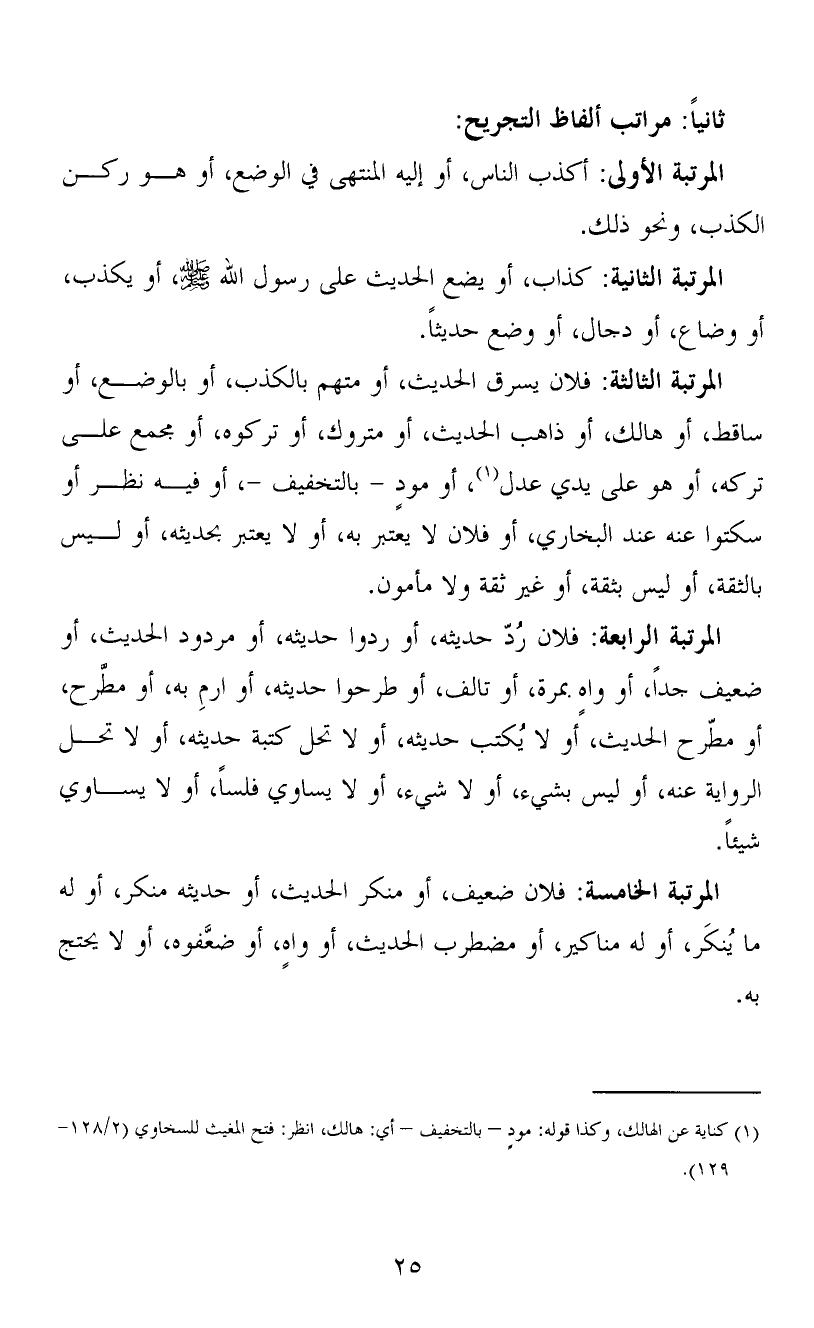 ثانياً: مراتب ألفاظ التجريح:
المرتبة الأولى: أكذب الناس، أو إليه المنتهى في الوضع، أو هـــو ركـــن
الكذب، ونحو ذلك.
المرتبة الثانية: كذاب، أو يضع الحديث على رسول الله ﷺ، أو يكذب،
أو وضاع، أو دجال، أو وضع حديثاً.
المرتبة الثالثة: فلان يسرق الحديث، أو متهم بالكذب، أو بالوضـــع، أو
ساقط، أو هالك، أو ذاهب الحديث، أو متروك، أو تركوه، أو مجمع علـــى
تركه، أو هو على يدي عدل(١)، أو مودٍ – بالتخفيف –، أو فيـــه نظـــر أو
سكتوا عنه عند البخاري، أو فلان لا يعتبر به، أو لا يعتبر بحديثه، أو لـــيس
بالثقة، أو ليس بثقة، أو غير ثقة ولا مأمون.
المرتبة الرابعة: فلان رُدّ حديثه، أو ردوا حديثه، أو مردود الحديث، أو
ضعيف جداً، أو واهٍ بمرة، أو تالف، أو طرحوا حديثه، أو ارمِ به، أو مطَّرح،
أو مطّرح الحديث، أو لا يُكتب حديثه، أو لا تحل كتبة حديثه، أو لا تحـــل
الرواية عنه، أو ليس بشيء، أو لا شيء، أو لا يساوي فلساً، أو لا يســـاوي
شيئاً.
المرتبة الخامسة: فلان ضعيف، أو منكر الحديث، أو حديثه منكر، أو له
ما يُنكَر، أو له مناكير، أو مضطرب الحديث، أو واهٍ، أو ضعَّفوه، أو لا يحتج
به.
(١) كناية عن الهالك، وكذا قوله: مودٍ – بالتخفيف – أي: هالك، انظر: فتح المغيث للسخاوي (١٢٨/٢-
١٢٩).
٢٥